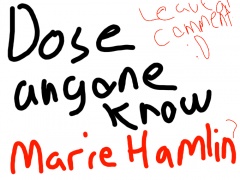 Dose
Leave a
comment
:D
anyone
know
Marie Hamlin?